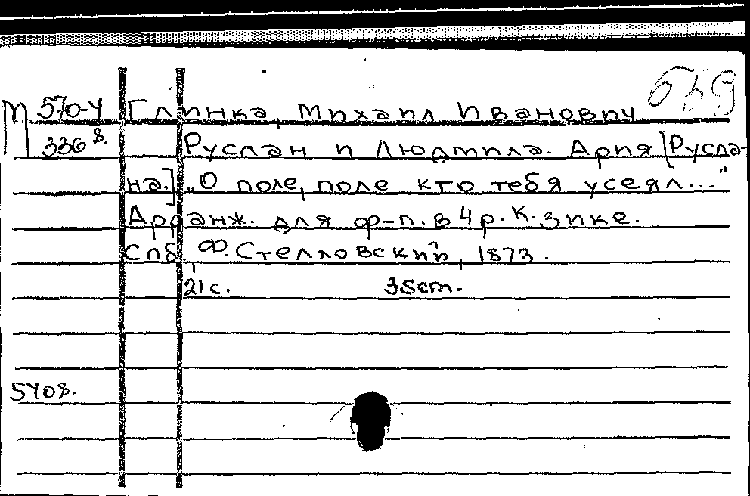 639
М 570-4 Глинка, Михаил Иванович
336 8. Руслан и Людмила. Ария [Русла-
на.] „О поле, поле кто тебя усеял..."
Арранж. для ф-п. в 4 р. К. Зике.
Спб. Ф. Стелловский, 1873.
21 с. 35cm.
5408.